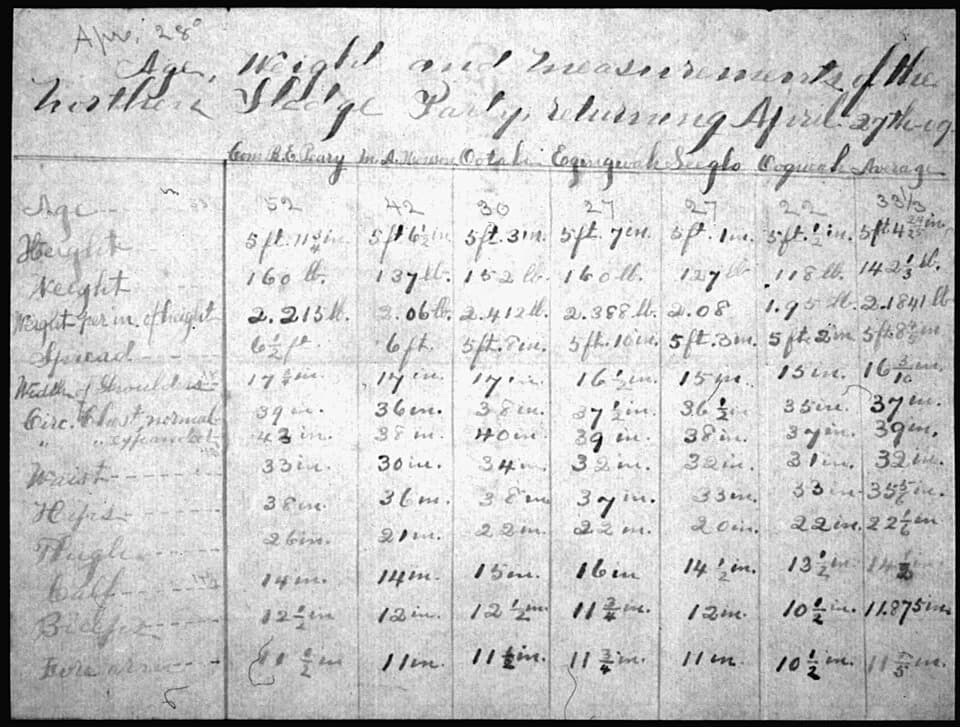 Apr. 28°
Age, Weight and measurements of the
Northern Sledge Party, returning April. 27th-09.
Com R. E. Peary M. A. Henson Ootah Egingwah Seeglo Ooqueah Average
Age 52 42 30 27 27 22 33 1/3
Height 5 ft. 11 3/4 in. 5 ft 6 1/2 in 5 ft. 3 in. 5 ft. 7 in. 5 ft. 1 in. 5 ft. 1/2 in. 5 ft. 4 in.
Weight 160 lb. 137 lb. 152 lb. 160 lb. 127 lb 118 lb. 142 1/3 lb.
Weight per in. of height 2.215 lb. 2.06 lb. 2.412 lb. 2.388 lb. 2.08 1.95 lb. 2.1841 lb
Spread 6 1/2 ft 6 ft. 5 ft. 8 in. 5 ft. 10 in. 5 ft. 3 in. 5 ft. 2 in. 5 ft. 8 in
Width of Shoulders 17 in. 17 in. 17 in. 16 1/2 in. 15 in. 15 in. 16 3/10 in.
Circ. Chest normal 39 in. 36 in. 38 in. 37 1/2 in. 36 1/2 in 35 in. 37 in.
" " expanded 43 in. 38 in. 40 in. 39 in. 38 in. 37 in. 39 in.
Waist 33 in. 30 in. 34 in. 32 in. 32 in. 31 in. 32 in.
Hips 38 in. 36 in. 38 in 37 in. 33 in. 33 in. 35 5/6 in.
Thigh 26 in. 21 in. 22 in. 22 in. 20 in. 22 in. 22 1/6 in
Calf 14 in. 14 in. 15 in. 16 in 14 1/2 in. 13 1/2 in 14
Biceps 12 1/2 in 12 in. 12 1/2 in. 11 3/4 in. 12 in. 10 1/2 in. 11.875 in
Fore arm 11 1/2 in 11 in. 11 1/2 in. 11 3/4 in. 11 in. 10 1/2 in. 11 in.